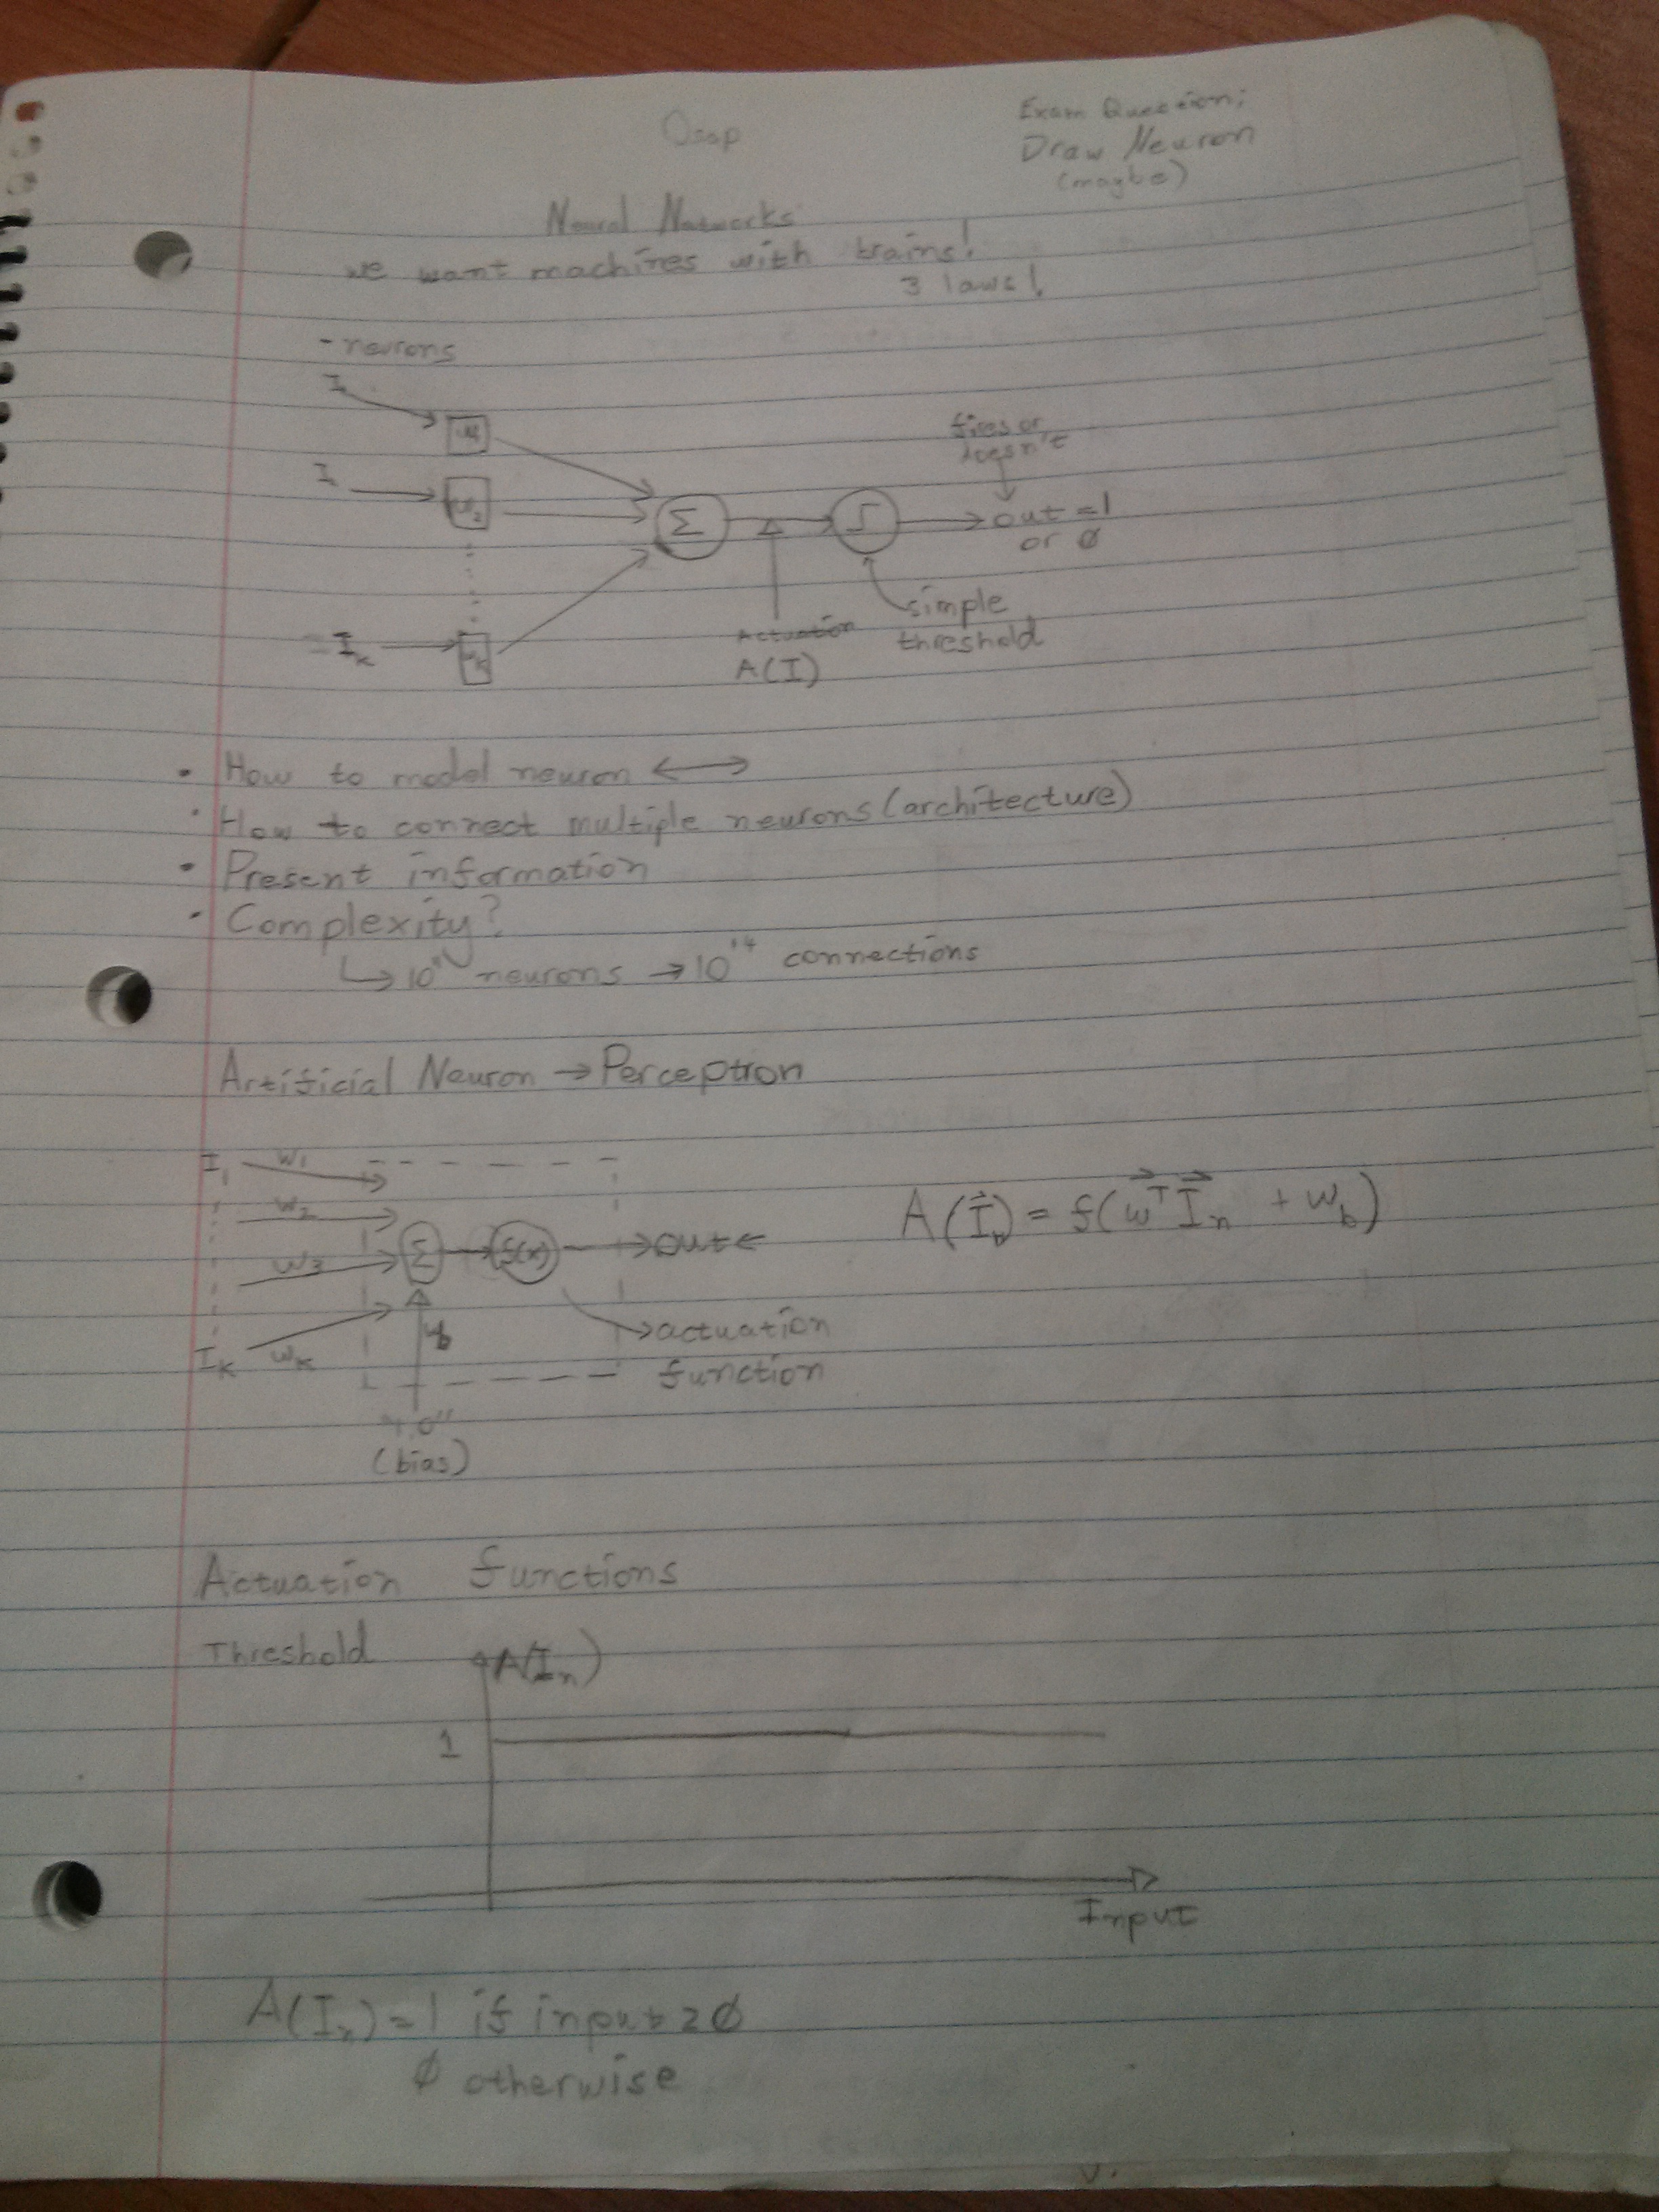 Osap
Exam Question:
Draw Neuron
(maybe)
Neural Networks
we want machines with brains!
3 laws!
- neurons
I
I
I_k
w_1
w_2
w_k
Σ
fires or
doesn't
out = 1
or ∅
Actuation
A(I)
simple
threshold
• How to model neuron ↔
• How to connect multiple neurons (architecture)
• Present information
• Complexity?
↳ 10^11 neurons → 10^14 connections
Artificial Neuron → Perceptron
I_1 w_1
w_2
w_3
I_k w_k
Σ → f(x) → out ←
w_b
(bias)
actuation
function
A(I⃗_n) = f(w⃗^T I⃗_n + w_b)
Actuation functions
Threshold
A(I_n)
1
Input
A(I_n) = 1 if input ≥ ∅
∅ otherwise